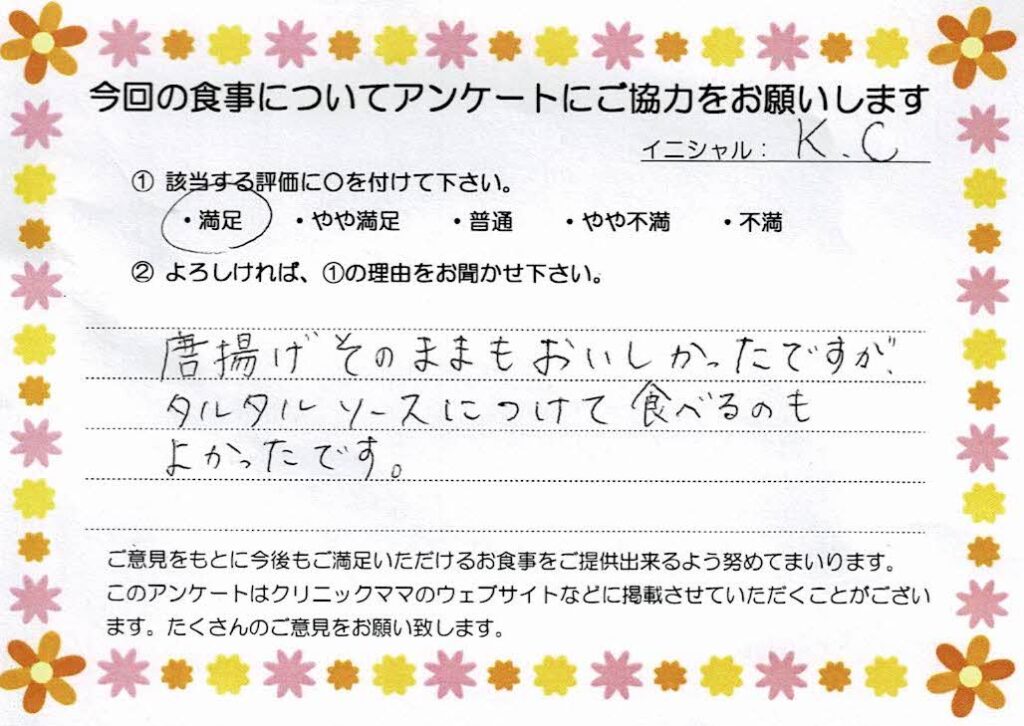 今回の食事についてアンケートにご協力をお願いします
イニシャル: K.C
① 該当する評価に〇を付けて下さい。
・満足 ・やや満足 ・普通 ・やや不満 ・不満
② よろしければ、①の理由をお聞かせ下さい。
唐揚げそのままもおいしかったですが、
タルタルソースにつけて食べるのも
よかったです。
ご意見をもとに今後もご満足いただけるお食事をご提供出来るよう努めてまいります。
このアンケートはクリニックママのウェブサイトなどに掲載させていただくことがござい
ます。たくさんのご意見をお願い致します。